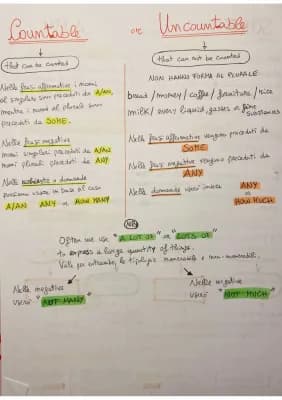 Countable or Uncountable
that can be counted
that can not be counted
Nelle frasi affermative i nomi
al singolare sono preceduti da A/AN,
mentre i nomi al plurale sono
preceduti da SOME.
NON HANNO FORMA AL PLURALE
bread / money / coffee / furniture / rice
milk / every liquid, gasses or fine
substances
Nelle frasi negative
nomi singolari preceduti da AN
nomi plurali preceduti da ANY
Nelle frasi affermative vengono preceduti da
SOME
Nelle frasi negative vengono preceduti da
ANY
Nelle domande
possiamo usare in base al caso
A/AN ANY o HOW MANY
Nelle domande userai invece ANY
o
HOW MUCH
NB
Often we use "A LOT OF" or "LOTS OF"
to express a large quantity of things.
Vale per entrambe le tipologie numerabili e non-numerabili.
Nelle negative
userai "NOT MANY"
Nelle negative
userai "NOT MUCH"